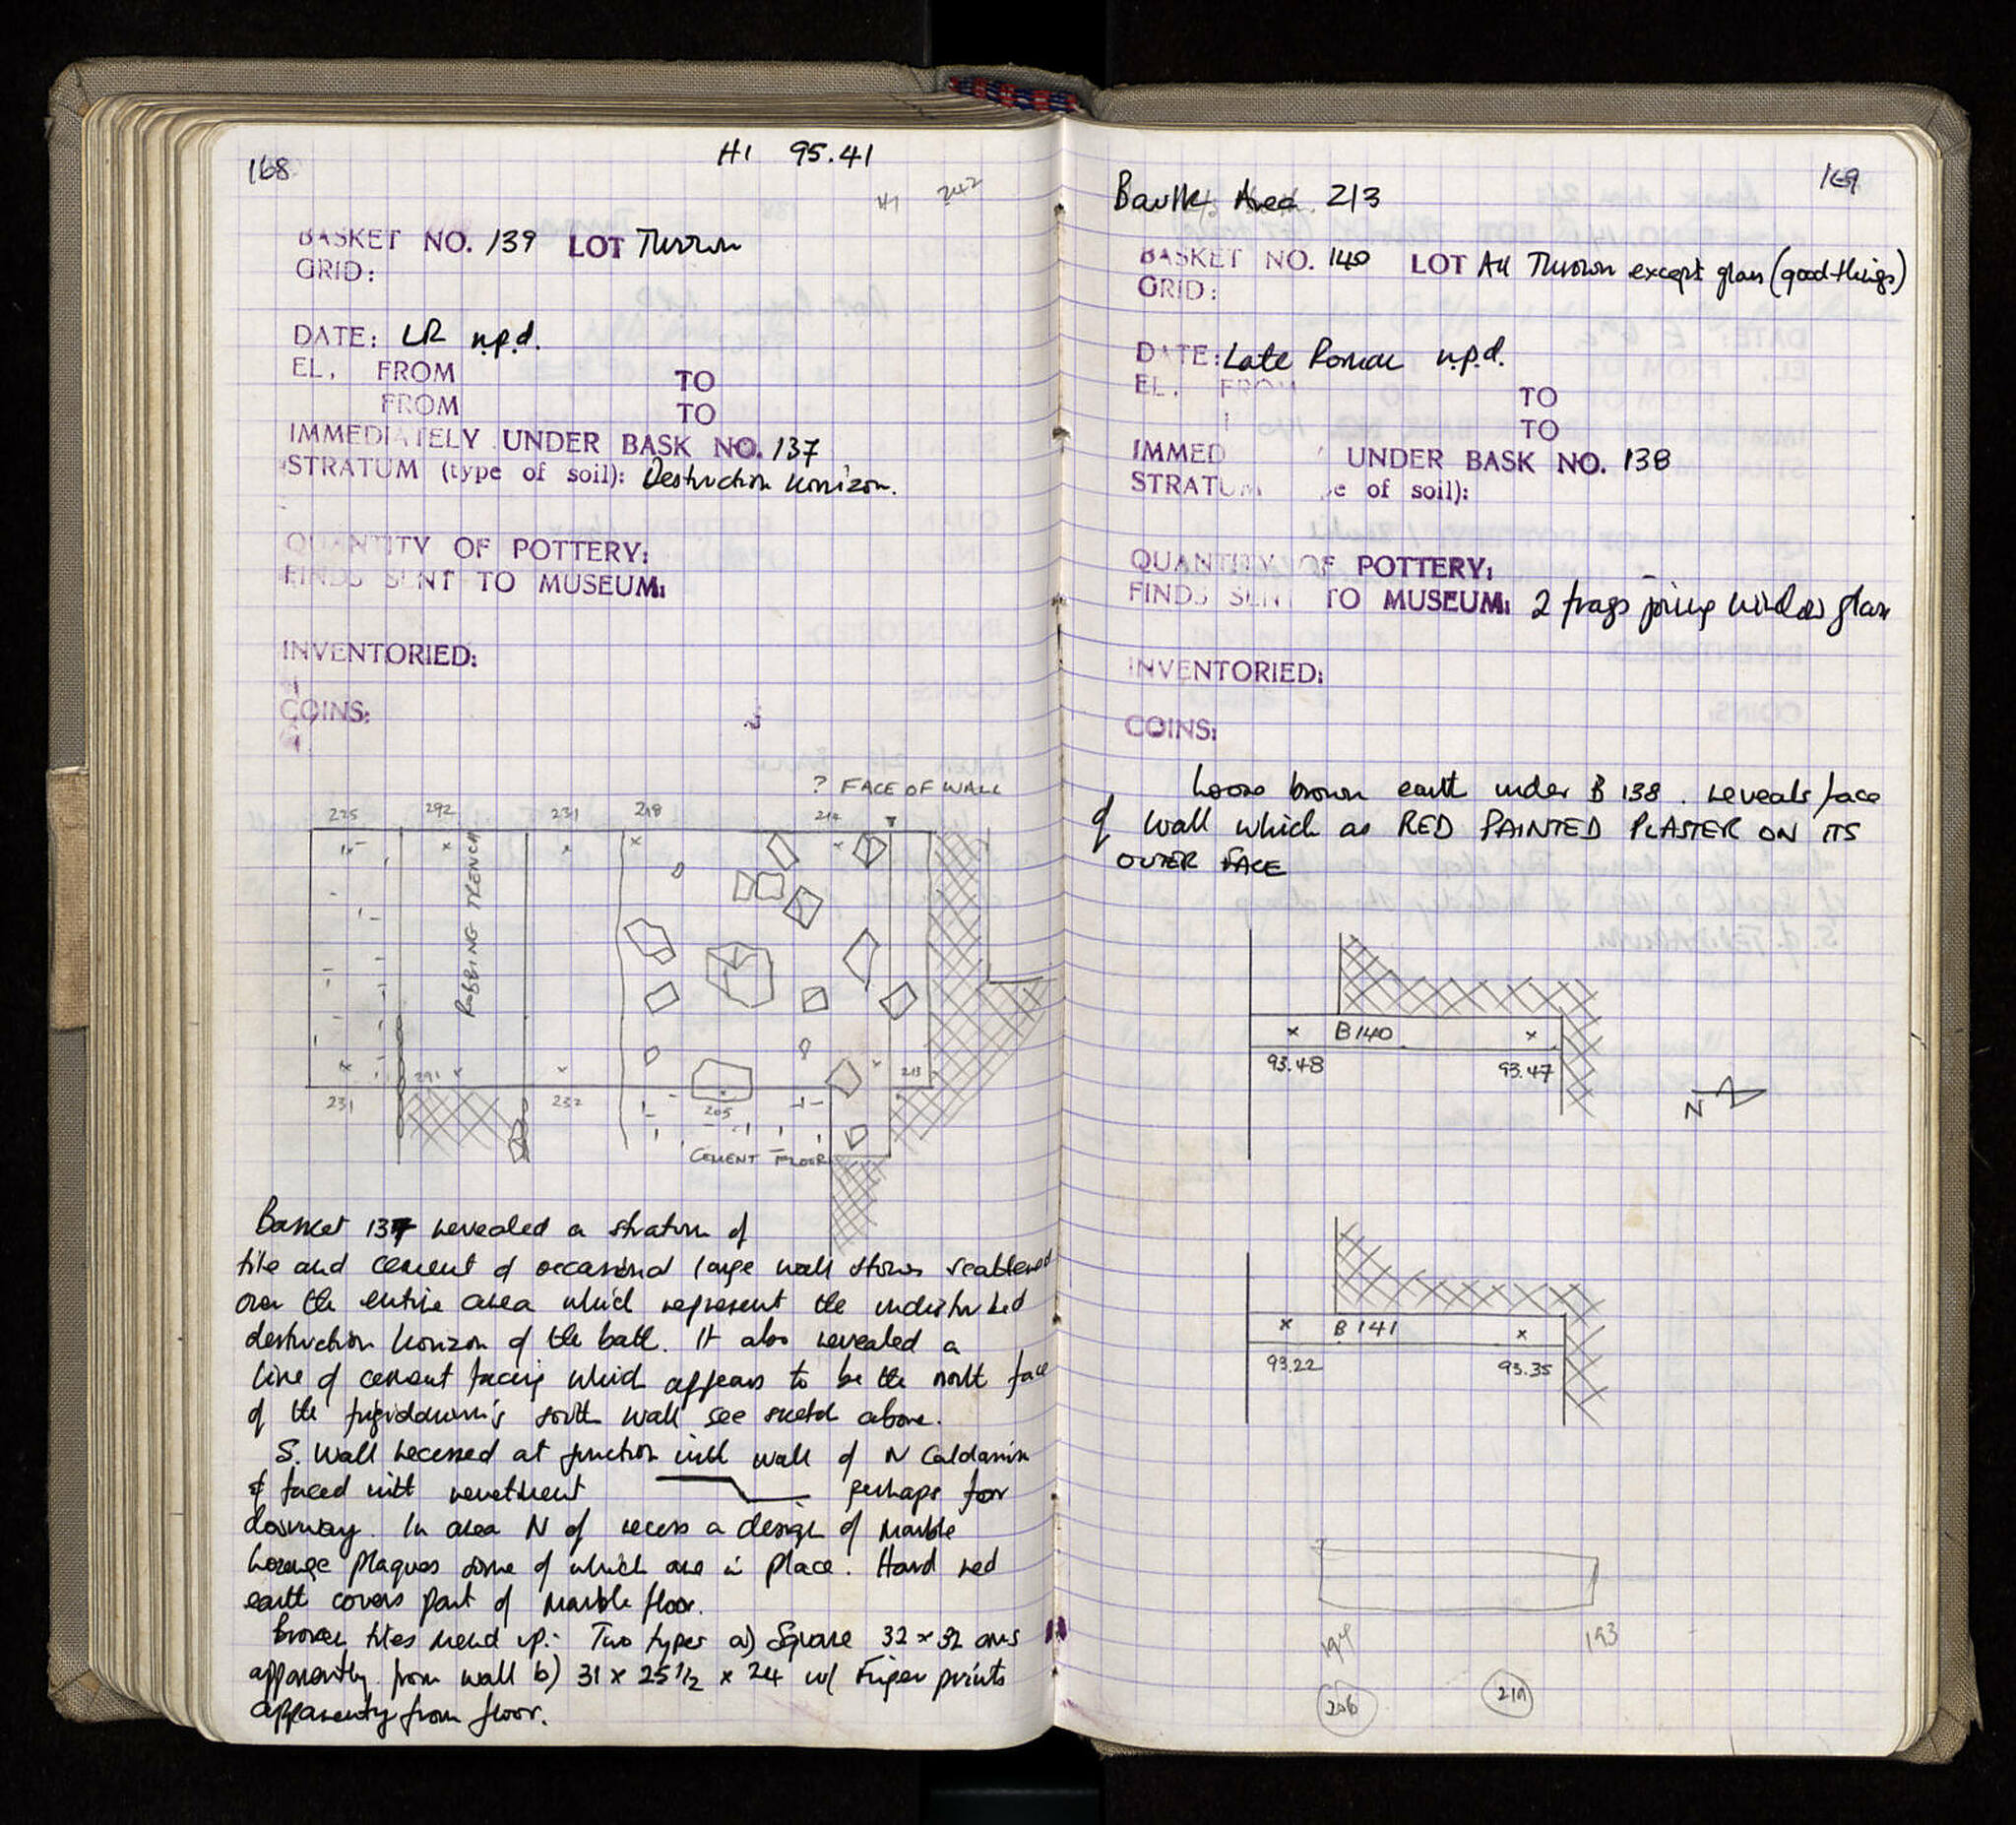 168
HI 95.41
HI 242
BASKET NO. 139 LOT Thrown
GRID:
DATE: LR n.p.d.
EL. FROM TO
FROM TO
IMMEDIATELY UNDER BASK NO. 137
STRATUM (type of soil): Destruction horizon.
QUANTITY OF POTTERY:
FINDS SENT TO MUSEUM:
INVENTORIED:
COINS:
? FACE OF WALL
225 292 231 218 214
ROBBING TRENCH
291 213
231 232 205
CEMENT FLOOR
Basket 137 revealed a stratum of
tile and cement & occasional large wall stones scattered
over the entire area which represent the undisturbed
destruction horizon of the bath. It also revealed a
line of cement facing which appears to be the north face
of the frigidarium's south wall see sketch above.
S. Wall recessed at junction with wall of N Caldarium
& faced with revetment perhaps for
doorway. In area N of recess a design of marble
lozenge plaques some of which are in place. Hard red
earth covers part of marble floor.
Broken tiles mend up:- Two types a) Square 32 × 32 cms
apparently from wall b) 31 × 25 1/2 × 24 w/ Finger prints
apparently from floor.
169
Baulk Area 2/3
BASKET NO. 140 LOT All Thrown except glass (good things)
GRID:
DATE: Late Roman n.p.d.
EL. FROM TO
TO
IMMED UNDER BASK NO. 138
STRATUM e of soil):
QUANTITY OF POTTERY:
FINDS SENT TO MUSEUM: 2 frags joining window glass
INVENTORIED:
COINS:
Loose brown earth under B 138. reveals face
of wall which as RED PAINTED PLASTER ON ITS
OUTER FACE
B 140
93.48 93.47
N
B 141
93.22 93.35
194 193
206 219